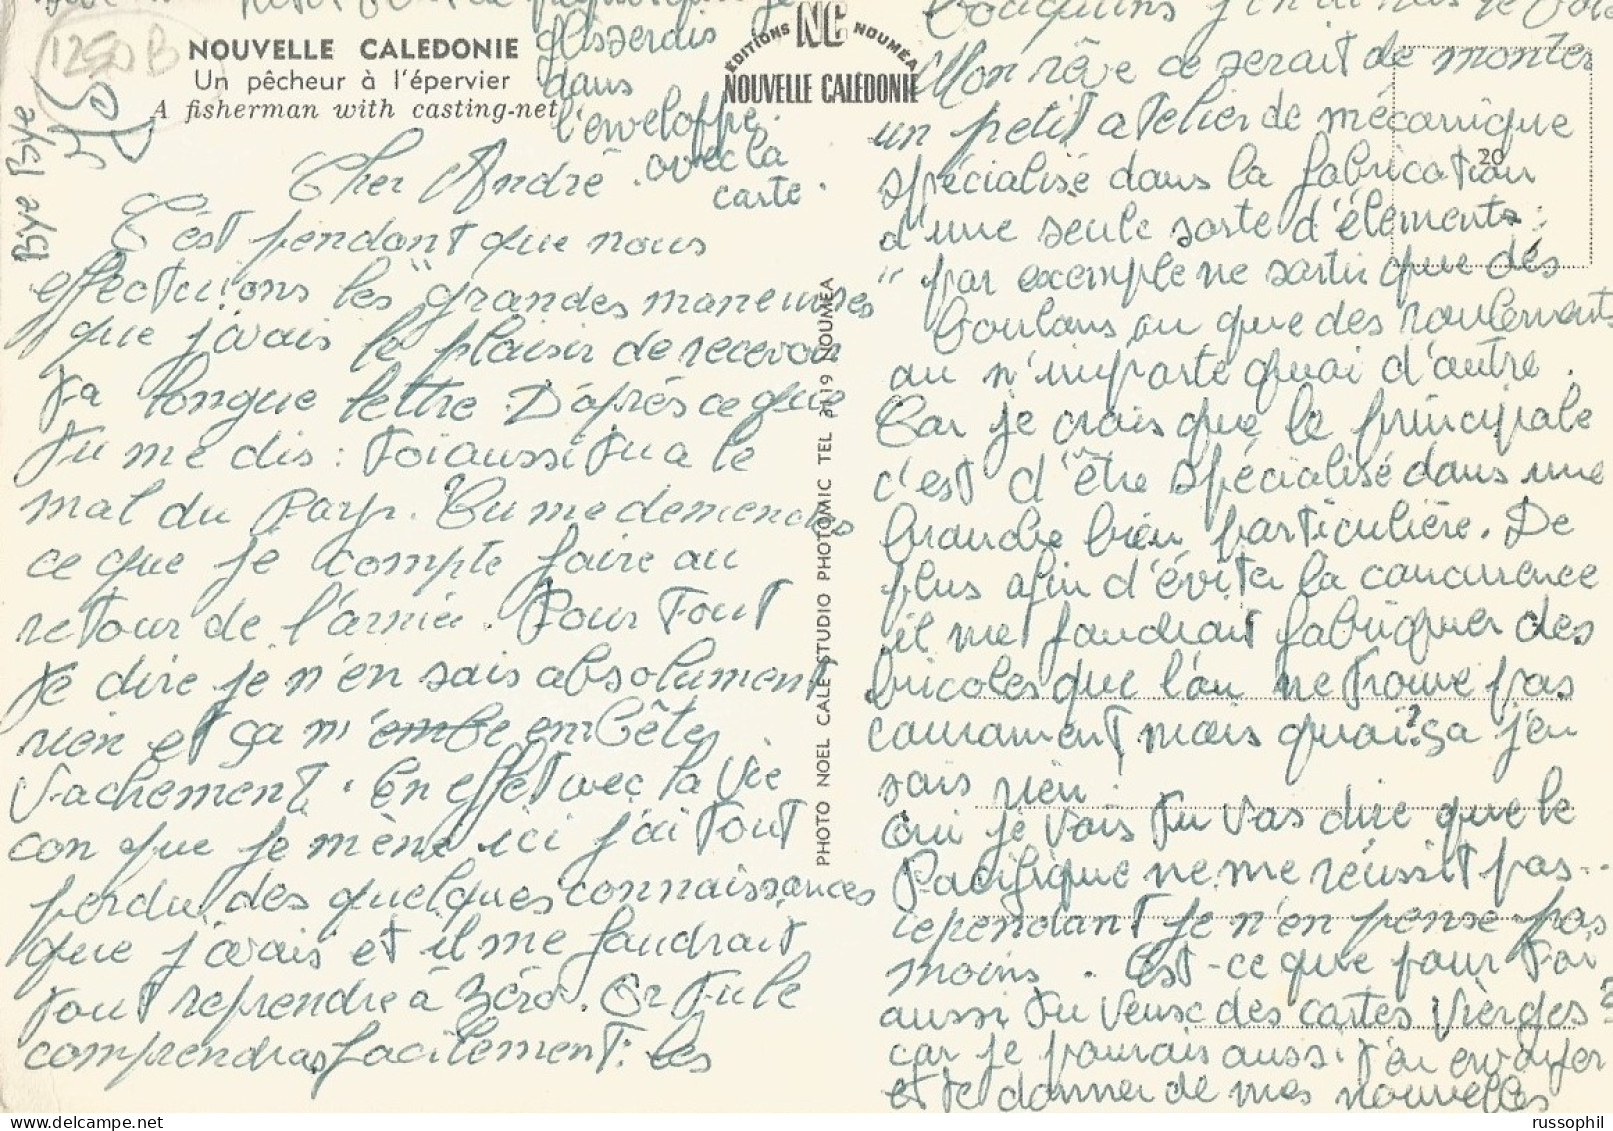 NOUVELLE CALEDONIE
Un pêcheur à l'épervier
A fisherman with casting-net
1250 B
Bye Bye
glisserais
dans
l'enveloppe.
avec la
carte.
Cher André.
C'est pendant que nous
effectuions les "grandes maneuvres
que j'avais le plaisir de recevoir
ta longue lettre. D'après ce que
tu me dis : toi aussi tu a le
mal du Pays. Tu me demendes
ce que je compte faire au
retour de l'armée. Pour tout
te dire je n'en sais absolument
rien et ça m'embe embête
vachement. En effet avec la vie
con que je mène ici j'ai tout
perdu des quelques connaissances
que j'avais et il me faudrait
tout reprendre à zéro. Or tu le
comprendras facilement : les
EDITIONS NC NOUMÉA
NOUVELLE CALÉDONIE
PHOTO NOEL CALE STUDIO PHOTOMIC TEL 2119 NOUMÉA
20
bouquins j'en ai
Mon rêve ce serait de monter
un petit atelier de mécanique
spécialisé dans la fabrication
d'une seule sorte d'éléments :
" par exemple ne sortir que des
boulons ou que des roulements
ou n'importe quoi d'autre.
Car je crois que le principale
c'est d'être spécialisé dans une
branche bien particulière. De
plus afin d'éviter la concurrence
il me faudrait fabriquer des
bricoles que l'on ne trouve pas
couramment, mais quoi ? ça j'en
sais rien !
Oui je vois tu vas dire que le
Pacifique ne me réussit pas...
cependant je n'en pense pas
moins. Est-ce que pour toi
aussi tu veux des cartes vierges ?
car je pourais aussi t'en envoyer
et te donner de mes nouvelles
russophil ON DELCAMPE.NET